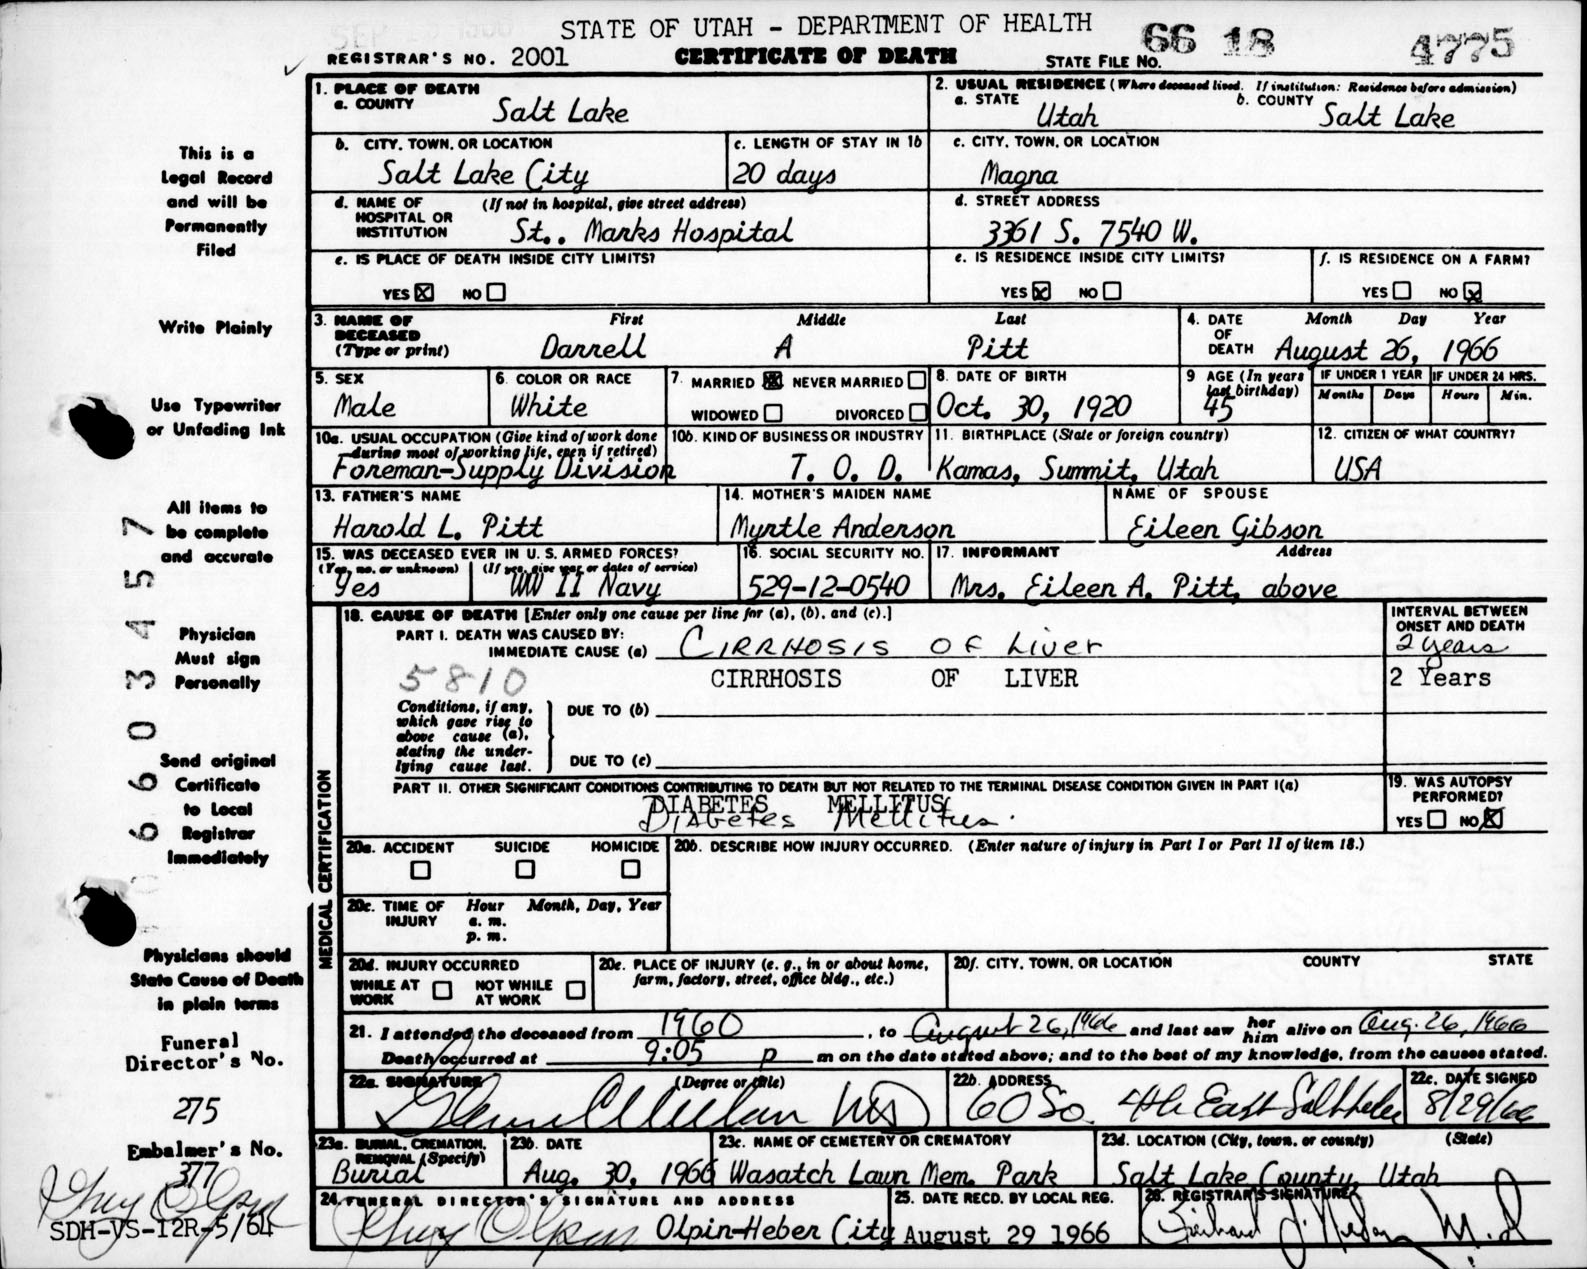 STATE OF UTAH - DEPARTMENT OF HEALTH
66 18 4775
REGISTRAR'S NO. 2001 CERTIFICATE OF DEATH STATE FILE NO.
1. PLACE OF DEATH
a. COUNTY Salt Lake
2. USUAL RESIDENCE (Where deceased lived. If institution: Residence before admission)
a. STATE Utah b. COUNTY Salt Lake
b. CITY, TOWN, OR LOCATION Salt Lake City
c. LENGTH OF STAY IN 1b 20 days
c. CITY, TOWN, OR LOCATION Magna
d. NAME OF HOSPITAL OR INSTITUTION (If not in hospital, give street address) St.. Marks Hospital
d. STREET ADDRESS 3361 S. 7540 W.
e. IS PLACE OF DEATH INSIDE CITY LIMITS?
YES ☒ NO ☐
e. IS RESIDENCE INSIDE CITY LIMITS?
YES ☒ NO ☐
f. IS RESIDENCE ON A FARM?
YES ☐ NO ☒
3. NAME OF DECEASED (Type or print)
First Middle Last
Darrell A Pitt
4. DATE OF DEATH Month Day Year
August 26, 1966
5. SEX Male
6. COLOR OR RACE White
7. MARRIED ☒ NEVER MARRIED ☐
WIDOWED ☐ DIVORCED ☐
8. DATE OF BIRTH Oct. 30, 1920
9 AGE (In years last birthday) 45
IF UNDER 1 YEAR Months Days
IF UNDER 24 HRS. Hours Min.
10a. USUAL OCCUPATION (Give kind of work done during most of working life, even if retired)
Foreman-Supply Division
10b. KIND OF BUSINESS OR INDUSTRY T. O. D.
11. BIRTHPLACE (State or foreign country) Kamas, Summit, Utah
12. CITIZEN OF WHAT COUNTRY? USA
13. FATHER'S NAME Harold L. Pitt
14. MOTHER'S MAIDEN NAME Myrtle Anderson
NAME OF SPOUSE Eileen Gibson
15. WAS DECEASED EVER IN U. S. ARMED FORCES?
(Yes, no, or unknown) Yes (If yes, give war or dates of service) WW II Navy
16. SOCIAL SECURITY NO. 529-12-0540
17. INFORMANT Address
Mrs. Eileen A. Pitt, above
MEDICAL CERTIFICATION
18. CAUSE OF DEATH [Enter only one cause per line for (a), (b), and (c).]
INTERVAL BETWEEN ONSET AND DEATH
PART I. DEATH WAS CAUSED BY:
IMMEDIATE CAUSE (a) Cirrhosis of Liver 2 years
5810 CIRRHOSIS OF LIVER 2 Years
Conditions, if any, which gave rise to above cause (a), stating the underlying cause last.
DUE TO (b)
DUE TO (c)
PART II. OTHER SIGNIFICANT CONDITIONS CONTRIBUTING TO DEATH BUT NOT RELATED TO THE TERMINAL DISEASE CONDITION GIVEN IN PART I(a)
DIABETES MELLITUS
Diabetes Mellitus.
19. WAS AUTOPSY PERFORMED?
YES ☐ NO ☒
20a. ACCIDENT SUICIDE HOMICIDE
☐ ☐ ☐
20b. DESCRIBE HOW INJURY OCCURRED. (Enter nature of injury in Part I or Part II of item 18.)
20c. TIME OF INJURY Hour Month, Day, Year
a. m.
p. m.
20d. INJURY OCCURRED
WHILE AT WORK ☐ NOT WHILE AT WORK ☐
20e. PLACE OF INJURY (e. g., in or about home, farm, factory, street, office bldg., etc.)
20f. CITY, TOWN, OR LOCATION COUNTY STATE
21. I attended the deceased from 1960, to August 26, 1966 and last saw her him alive on Aug. 26, 1966
Death occurred at 9:05 p m on the date stated above; and to the best of my knowledge, from the causes stated.
22a. SIGNATURE (Degree or title) MD
22b. ADDRESS 60 So. 4th East Salt Lake
22c. DATE SIGNED 8/29/66
23a. BURIAL, CREMATION, REMOVAL (Specify) Burial
23b. DATE Aug. 30, 1966
23c. NAME OF CEMETERY OR CREMATORY Wasatch Lawn Mem. Park
23d. LOCATION (City, town, or county) (State)
Salt Lake County, Utah
24. FUNERAL DIRECTOR'S SIGNATURE AND ADDRESS
Guy Olpin Olpin-Heber City
25. DATE RECD. BY LOCAL REG. August 29 1966
26. REGISTRAR'S SIGNATURE
M.D
This is a
Legal Record
and will be
Permanently
Filed
Write Plainly
Use Typewriter
or Unfading Ink
All items to
be complete
and accurate
Physician
Must sign
Personally
Send original
Certificate
to Local
Registrar
Immediately
Physicians should
State Cause of Death
in plain terms
Funeral
Director's No.
275
Embalmer's No.
377
Guy Olpin
SDH-VS-12R-5/64
6603457